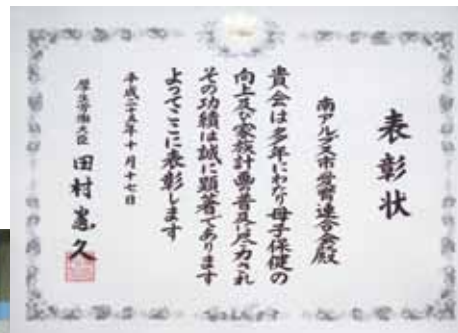 表彰状
南アルプス市愛育連合会殿
貴会は多年にわたり母子保健の
向上及び家族計画の普及に尽力され
その功績は誠に顕著であります
よってここに表彰します
平成二十五年十月十七日
厚生労働大臣 田村憲久